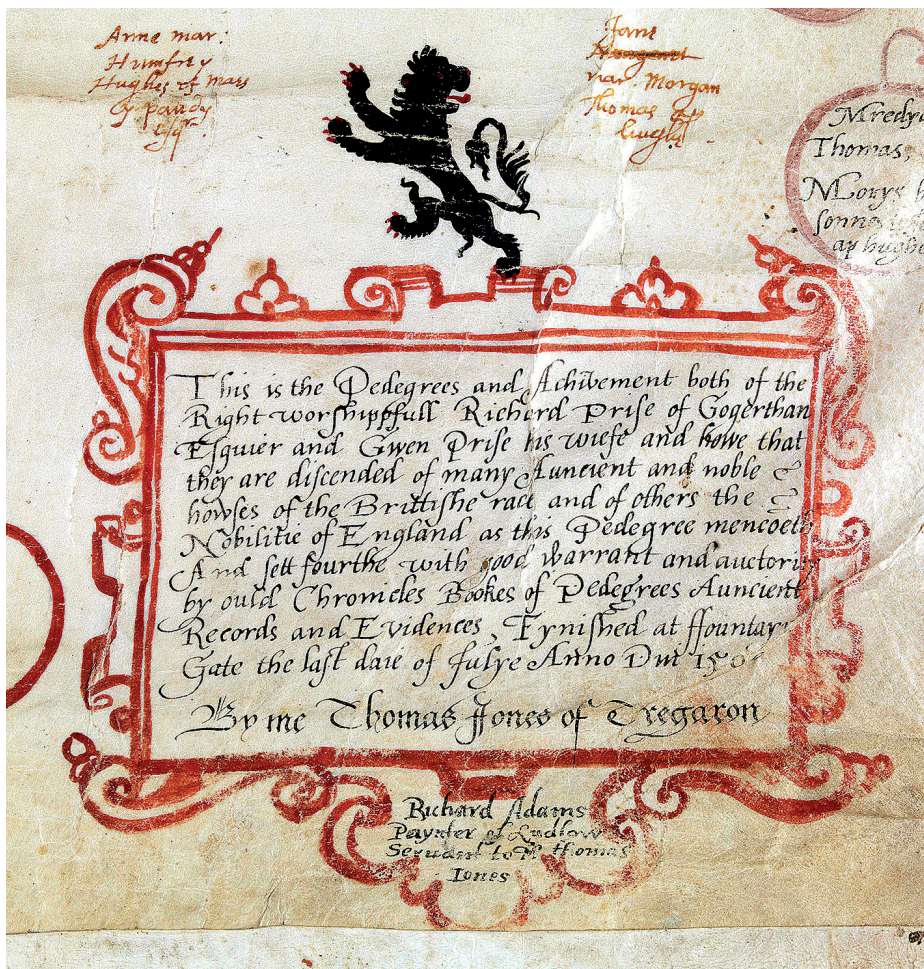 Anne mar:
Humfrey
Hughes of Maes
y pandy
Jane
var. Morgan
Thomas ap
Mredydd
Thomas,
Morys
sonnes
ap hughe
This is the Pedegrees and Achivement both of the
Right worshippfull Richard Prise of Gogerthan
Esquier and Gwen Prise his wiefe and howe that
they are discended of many Auncient and noble
howses of the Brittishe race and of others the
Nobilitie of England as this Pedegree mencoeth
And sett fourthe with good warrant and auctori
by ould Chronicles Bookes of Pedegrees Auncient
Records and Evidences, Fynished at ffountay
Gate the last daie of Julye Anno Dni
By me Thomas Jones of Tregaron
Richard Adams
Paynter of Ludlow
Servant to Mr thomas
Iones